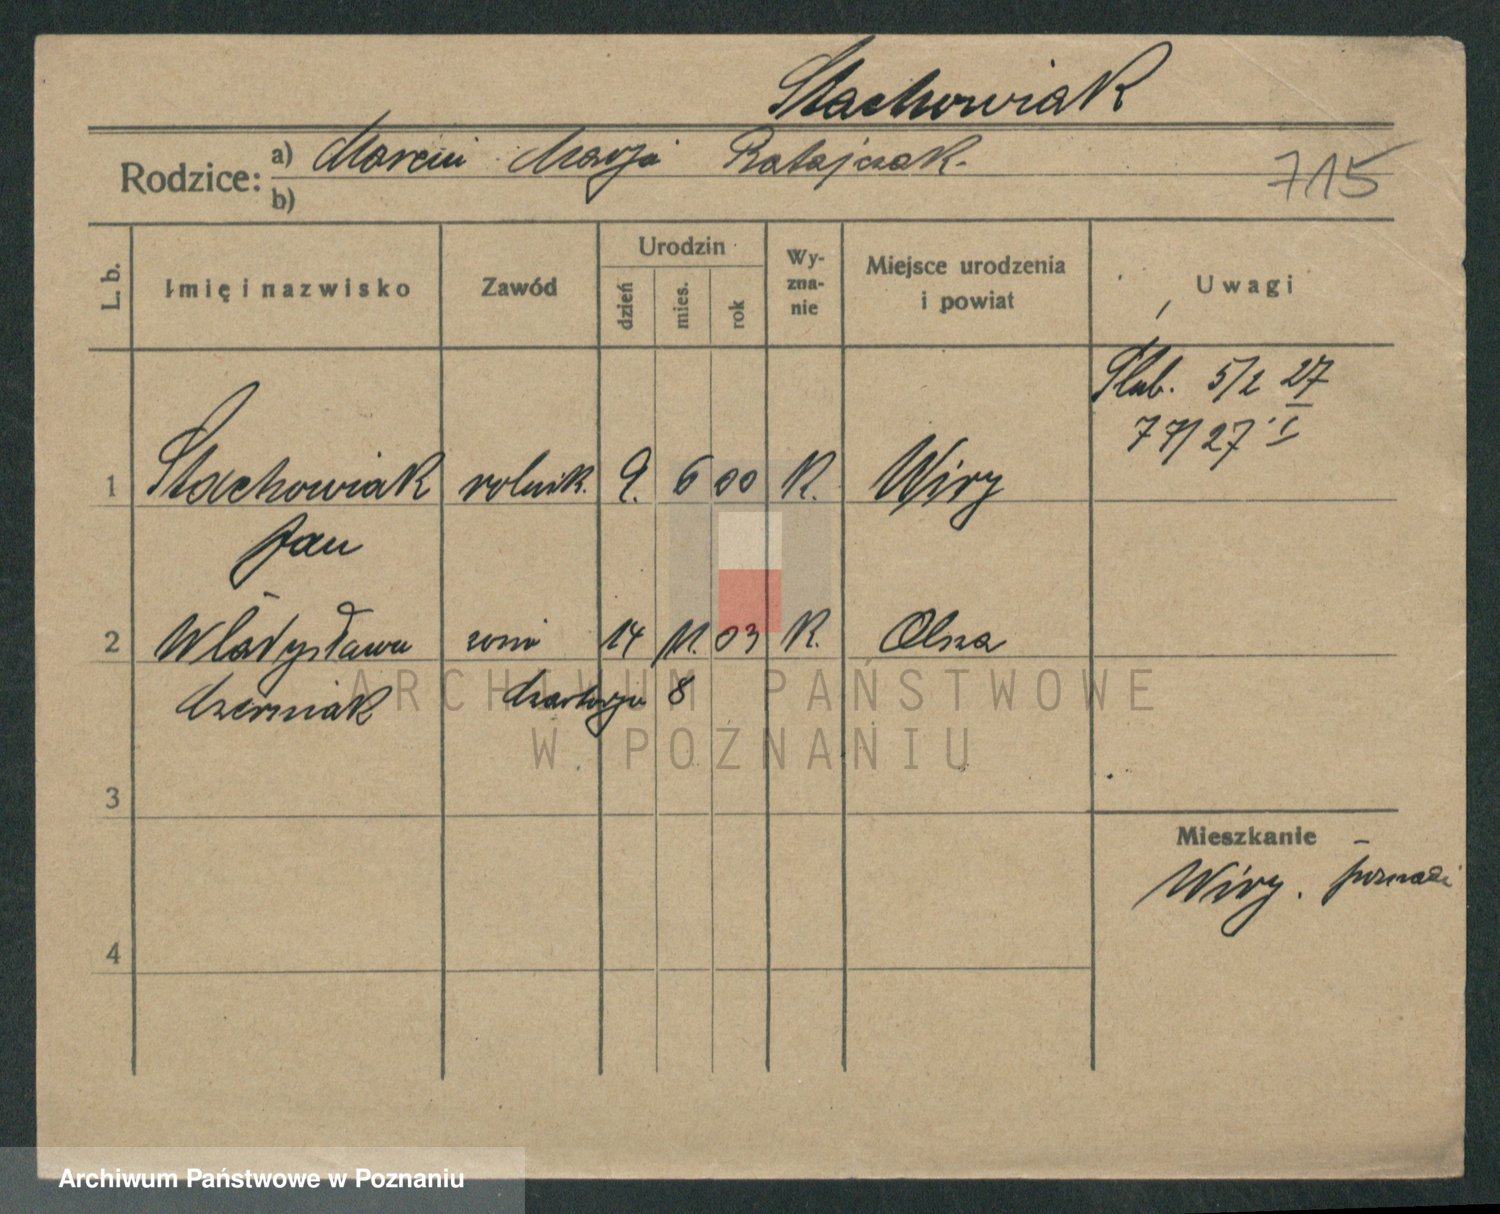 Stachowiak
Rodzice: a) Marcin Marja Ratajczak.
b)
715
L. b.
Imię i nazwisko
Zawód
Urodzin
dzień
mies.
rok
Wy-
zna-
nie
Miejsce urodzenia
i powiat
Uwagi
Ślub. 5/2 27
77/27 I
1 Stachowiak rolnik. 9. 6 00 K. Wiry
Jan
2 Władysława żona 14 11. 03 K. Olsza
8
3
4
Mieszkanie
Wiry. Poznań
ARCHIWUM PAŃSTWOWE
W POZNANIU
Archiwum Państwowe w Poznaniu